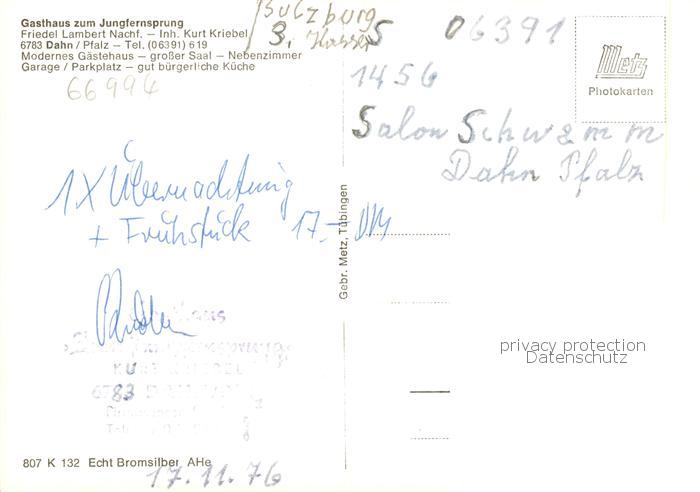 Gasthaus zum Jungfernsprung
Friedel Lambert Nachf. – Inh. Kurt Kriebel
6783 Dahn / Pfalz – Tel. (06391) 619
Modernes Gästehaus – großer Saal – Nebenzimmer
Garage / Parkplatz – gut bürgerliche Küche
66994
Sulzburg
S 06391
1456
Salon Schwamm
Dahn Pfalz
Metz
Photokarten
1X Übernachtung
+ Frühstück 17.- DM
Gebr. Metz, Tübingen
KURT KRIEBEL
6783
privacy protection
Datenschutz
807 K 132 Echt Bromsilber AHe
17.11.76